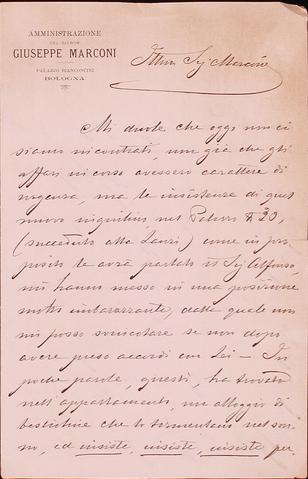 AMMINISTRAZIONE
DEL SIGNOR
GIUSEPPE MARCONI
PALAZZO BIANCONCINI
BOLOGNA
Illmo Sigr Marconi
Mi duole che oggi non ci
siamo incontrati, non già che gli
affari in corso avessero carattere di
urgenza, ma le insistenze di quel
nuovo inquilino nel Palazzo N. 20,
(succeduto alla Lanzi) come in pro
posito le avrà parlato il Sig Alfonso
mi hanno messo in una posizione
molto imbarazzante, dalla quale non
mi posso svincolare se non dopo
avere preso accordi con Lei – In
poche parole, questi, ha trovato
nell'appartamento, un alloggio di
bestioline che lo tormentano nel son
no, ed insiste, insiste, insiste per